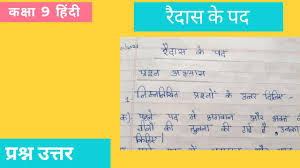 कक्षा 9 हिंदी
रैदास के पद
रैदास के पद
प्रश्न अभ्यास
1 निम्नलिखित प्रश्नों के उत्तर दीजिए
क) पहले पद में भगवान और भक्त
की तुलना की गई है, उनका
प्रश्न उत्तर